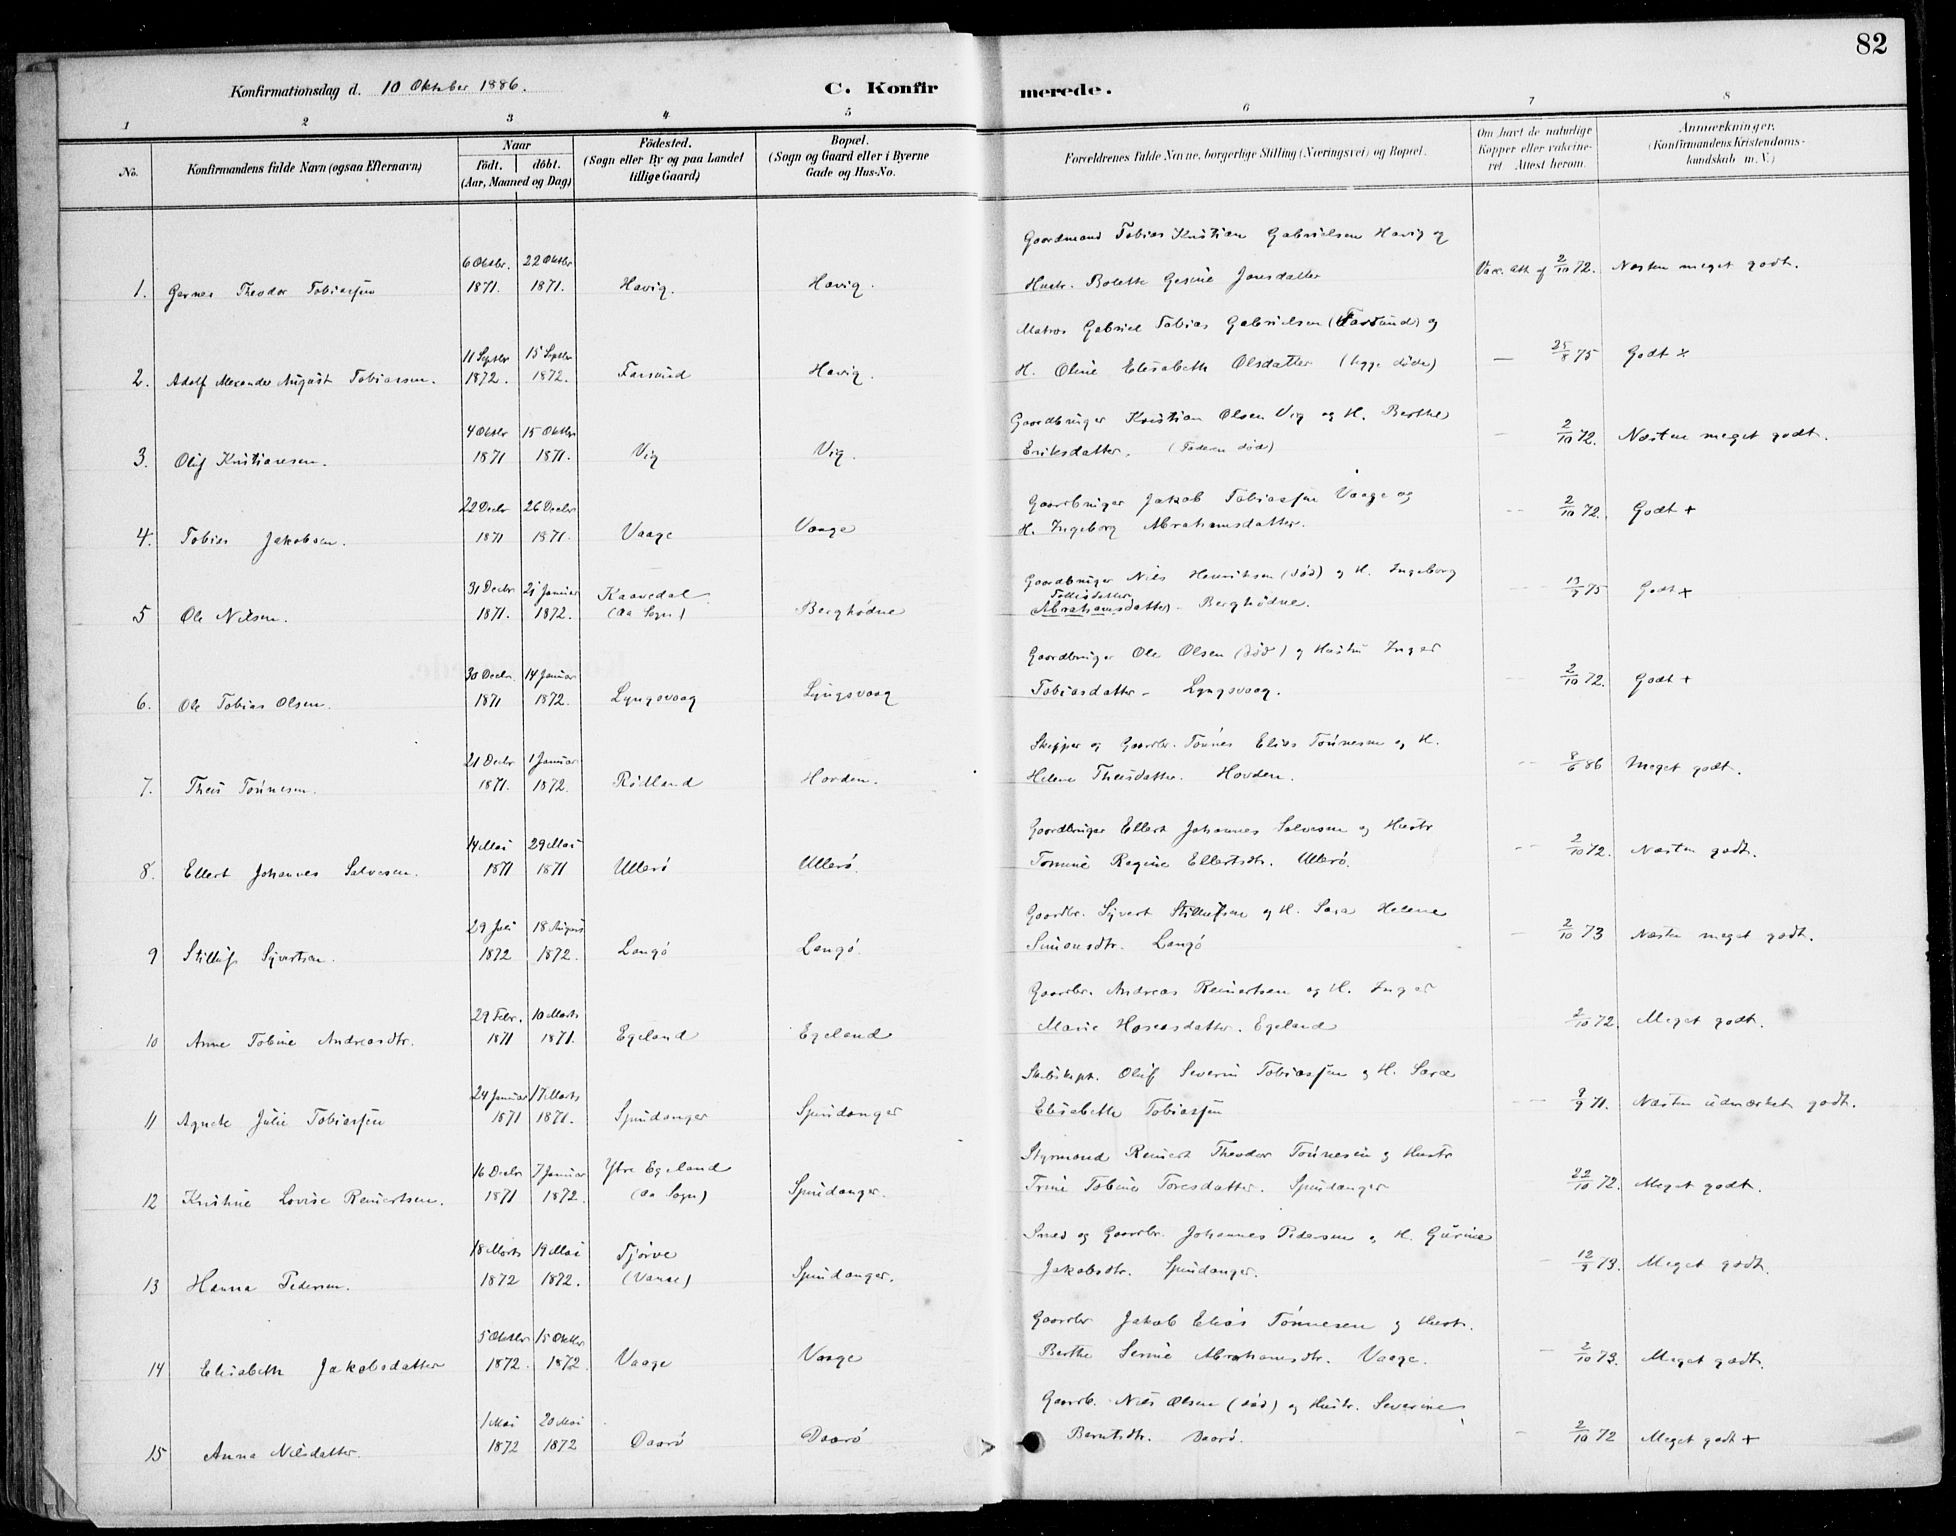 82
Konfirmationsdag d. 10 Oktober 1886.
C. Konfirmerede.
1 2 3 4 5 6 7 8
No.
Konfirmandens fulde Navn (ogsaa Efternavn)
Naar
födt. döbt.
(Aar, Maaned og Dag)
Födested.
(Sogn eller By og paa Landet
tillige Gaard)
Bopæl.
(Sogn og Gaard eller i Byerne
Gade og Hus-No.
Forældrenes fulde Navne, borgerlige Stilling (Næringsvei) og Bopæl.
Om havt de naturlige
Kopper eller vakcine-
ret Attest herom.
Anmærkninger.
(Konfirmandens Kristendoms-
kundskab m. V.)
Gaardmand Tobias Kristian Gabrielsen Havig og
6 Oktbr. 22 Oktbr
1. Theodor Tobiassen 1871. 1871. Havig. Havig. Hustr. Bolette Gesine Jonsdatter Vax. Att. af 2/10 72. Næsten meget godt.
Matros Gabriel Tobias Gabrielsen (Farsund) og
11 Septbr 15 Septbr
2. Adolf Alexander August Tobiassen. 1872. 1872. Farsund Havig. H. Oline Elisabeth Olsdatter (begge døde) — 25/8 75 Godt ×
4 Oktbr 15 Oktbr Gaardbruger Kristian Olsen Vig og H. Berthe
3. Oluf Kristiansen. 1871 1871. Vig Vig. Eriksdatter. (Faderen død) — 2/10 72. Næsten meget godt.
22 Decbr 26 Decbr Gaardbruger Jakob Tobiassen Vaage og
4. Tobias Jakobsen. 1871 1871. Vaage Vaage H. Ingeborg Abrahamsdatter. — 2/10 72. Godt +
31 Decbr 21 Januar Kaavedal Gaardbruger Nils Henriksen (død) og H. Ingeborg
Tollisdatter
5 Ole Nilsen. 1871. 1872. (Aa Sogn) Berghødne Abrahamsdatter - Berghødne. — 13/9 75 Godt +
30 Decbr. 14 Januar Gaardbruger Ole Olsen (død) og Hustru Inger
6. Ole Tobias Olsen. 1871 1872. Lyngsvaag Lyngsvaag Tobiasdatter - Lyngsvaag. — 2/10 72. Godt +
21 Decbr 1 Januar Skipper og Gaardbr. Tønnes Elias Tønnesen og H.
7. Theis Tønnesen. 1871. 1872. Rødland Hovden. Helene Theisdatter. Hovden. — 8/6 86 Meget godt.
14 Mai 29 Mai Gaardbruger Ellert Johannes Salvesen og Hustr
8. Ellert Johannes Salvesen. 1871 1871 Ullerø Ullerø. Tomine Regine Ellertsdtr. Ullerø. — 2/10 72. Næsten godt.
29 Juli 18 August Gaardbr. Syvert Stillufsen og H. Sara Helene
9 Stilluf Syvertsen. 1872 1872. Langø Langø. Simonsdtr. Langø — 2/10 73 Næsten meget godt.
29 Febr. 10 Marts Gaardbr. Andreas Reinertsen og H. Inger
10 Anne Tobine Andreasdtr. 1871 1871. Egeland Egeland Marie Hoseasdatter. Egeland — 2/10 72. Meget godt.
24 Januar 17 Marts Skibskapt. Oluf Severin Tobiassen og H. Sara
11 Agnete Julie Tobiassen 1871 1871. Spindanger Spindanger Elisabeth Tobiassen — 9/9 71. Næsten udmærket godt.
16 Decbr 7 Januar Ytre Egeland Styrmand Reinert Theodor Tønnesen og Hustr
12 Kristine Lovise Reinertsen. 1871 1872. (Aa Sogn) Spindanger. Trine Tobine Toresdatter. Spindanger — 22/10 72. Meget godt.
18 Marts 19 Mai Tjørve Smed og Gaardbr. Johannes Pedersen og H. Gurine
13 Hanna Pedersen. 1872 1872. (Vanse) Spindanger. Jakobsdtr. Spindanger. — 12/9 73. Meget godt.
5 Oktbr 15 Oktbr Gaardbr Jakob Elias Tønnesen og Hustr.
14 Elisabeth Jakobsdatter 1872. 1872. Vaage Vaage Berthe Serine Abrahamsdtr. Vaage. — 2/10 73. Meget godt.
1 Mai 20 Mai Gaardb. Nils Olsen (død) og Hustr. Severine
15 Anna Nilsdatter. 1872 1872 Daarø Daarø Berntsdtr. Daarø. — 2/10 72 Meget godt +